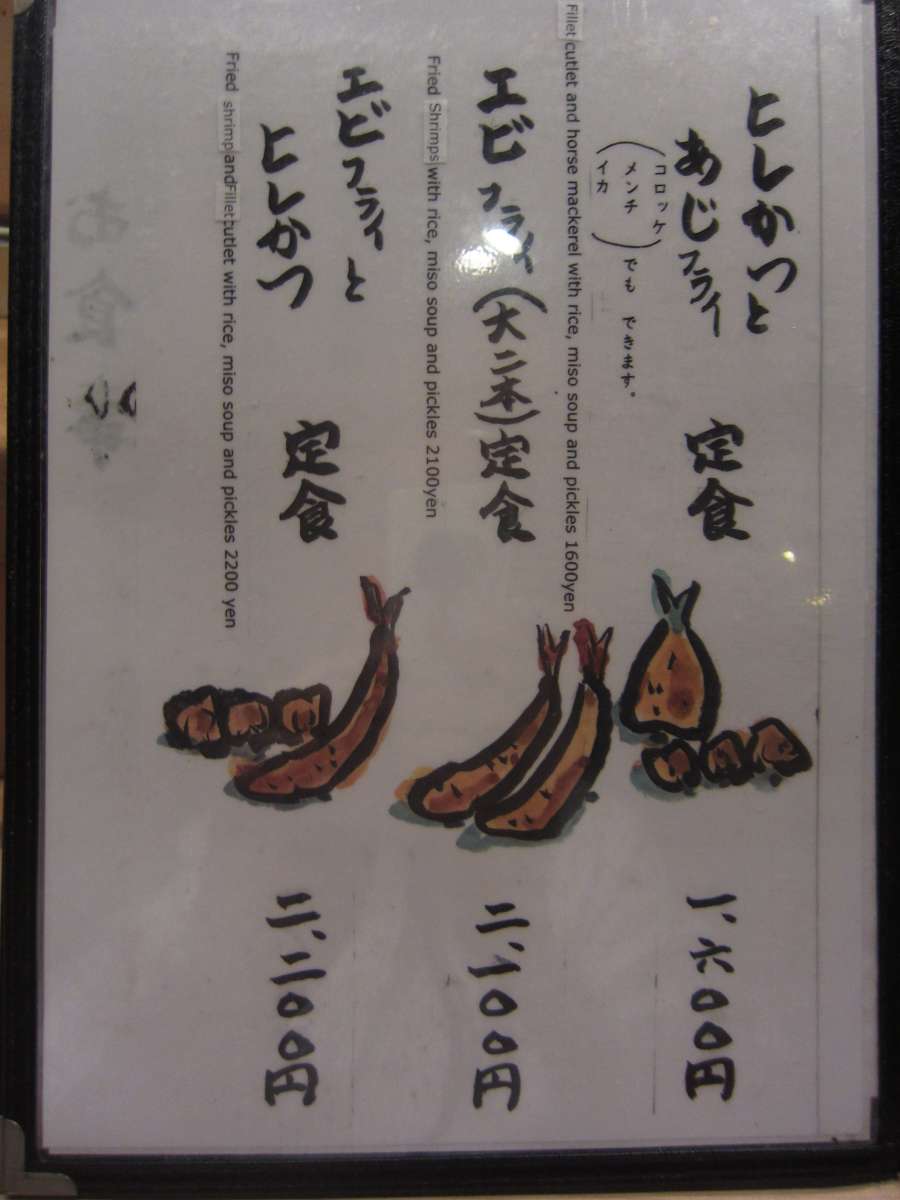 ヒレかつと
あじフライ
定食
一、六〇〇円
(コロッケ
メンチ
イカ)
でも できます。
Fillet cutlet and horse mackerel with rice, miso soup and pickles 1600yen
エビフライ(大二本)定食
二、一〇〇円
Fried Shrimps with rice, miso soup and pickles 2100yen
エビフライと
ヒレかつ
定食
二、二〇〇円
Fried shrimp and Fillet cutlet with rice, miso soup and pickles 2200 yen